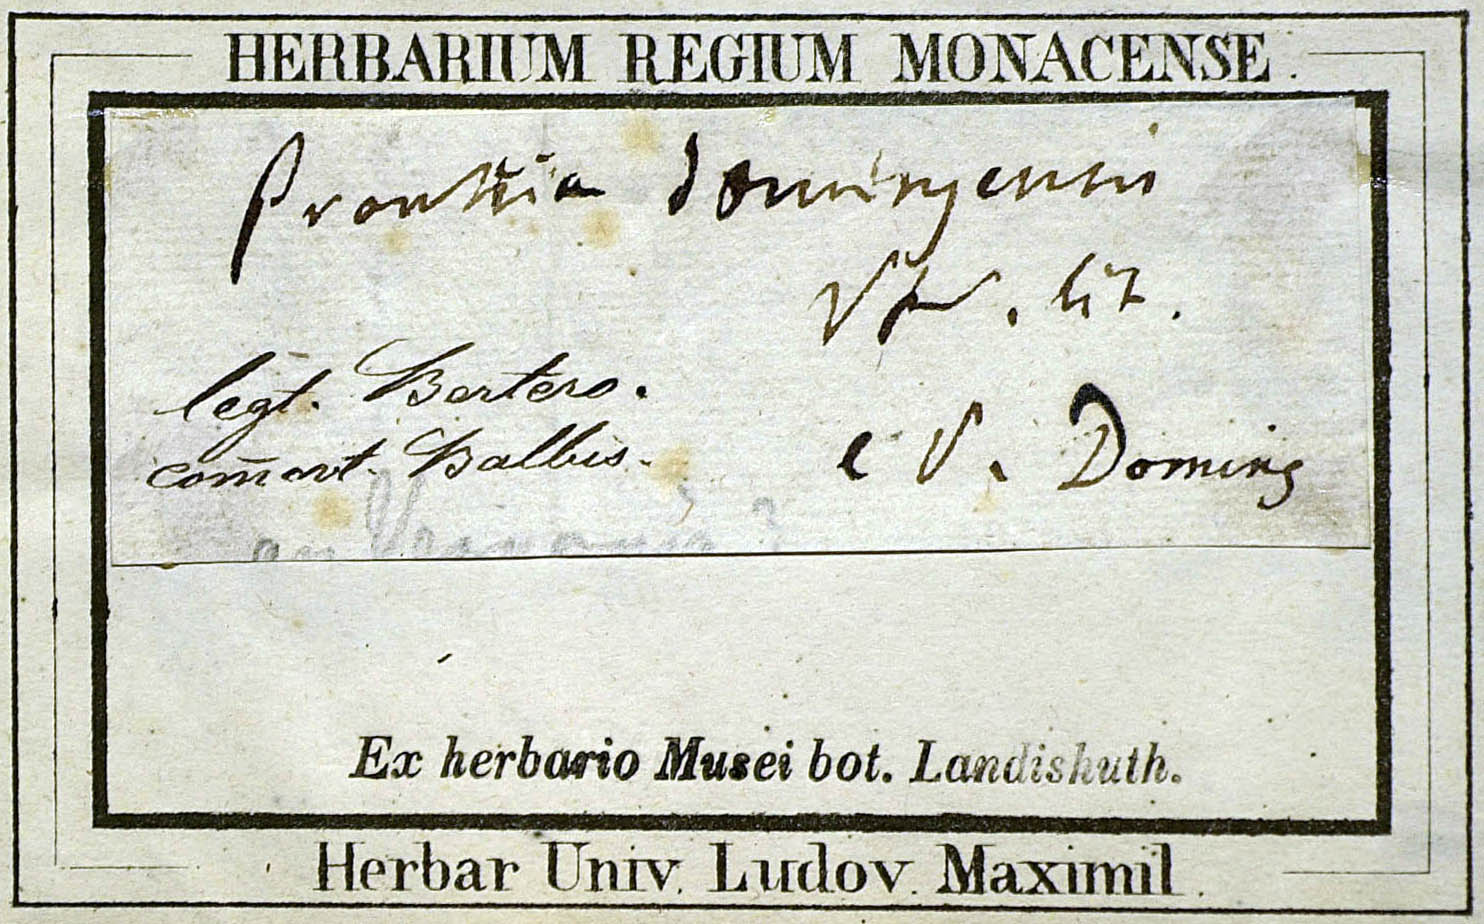 HERBARIUM REGIUM MONACENSE.
Proustia domingensis
Spr. lit.
legt. Bertero.
Balbis.
e S. Doming
Ex herbario Musei bot. Landishuth.
Herbar Univ. Ludov. Maximil.